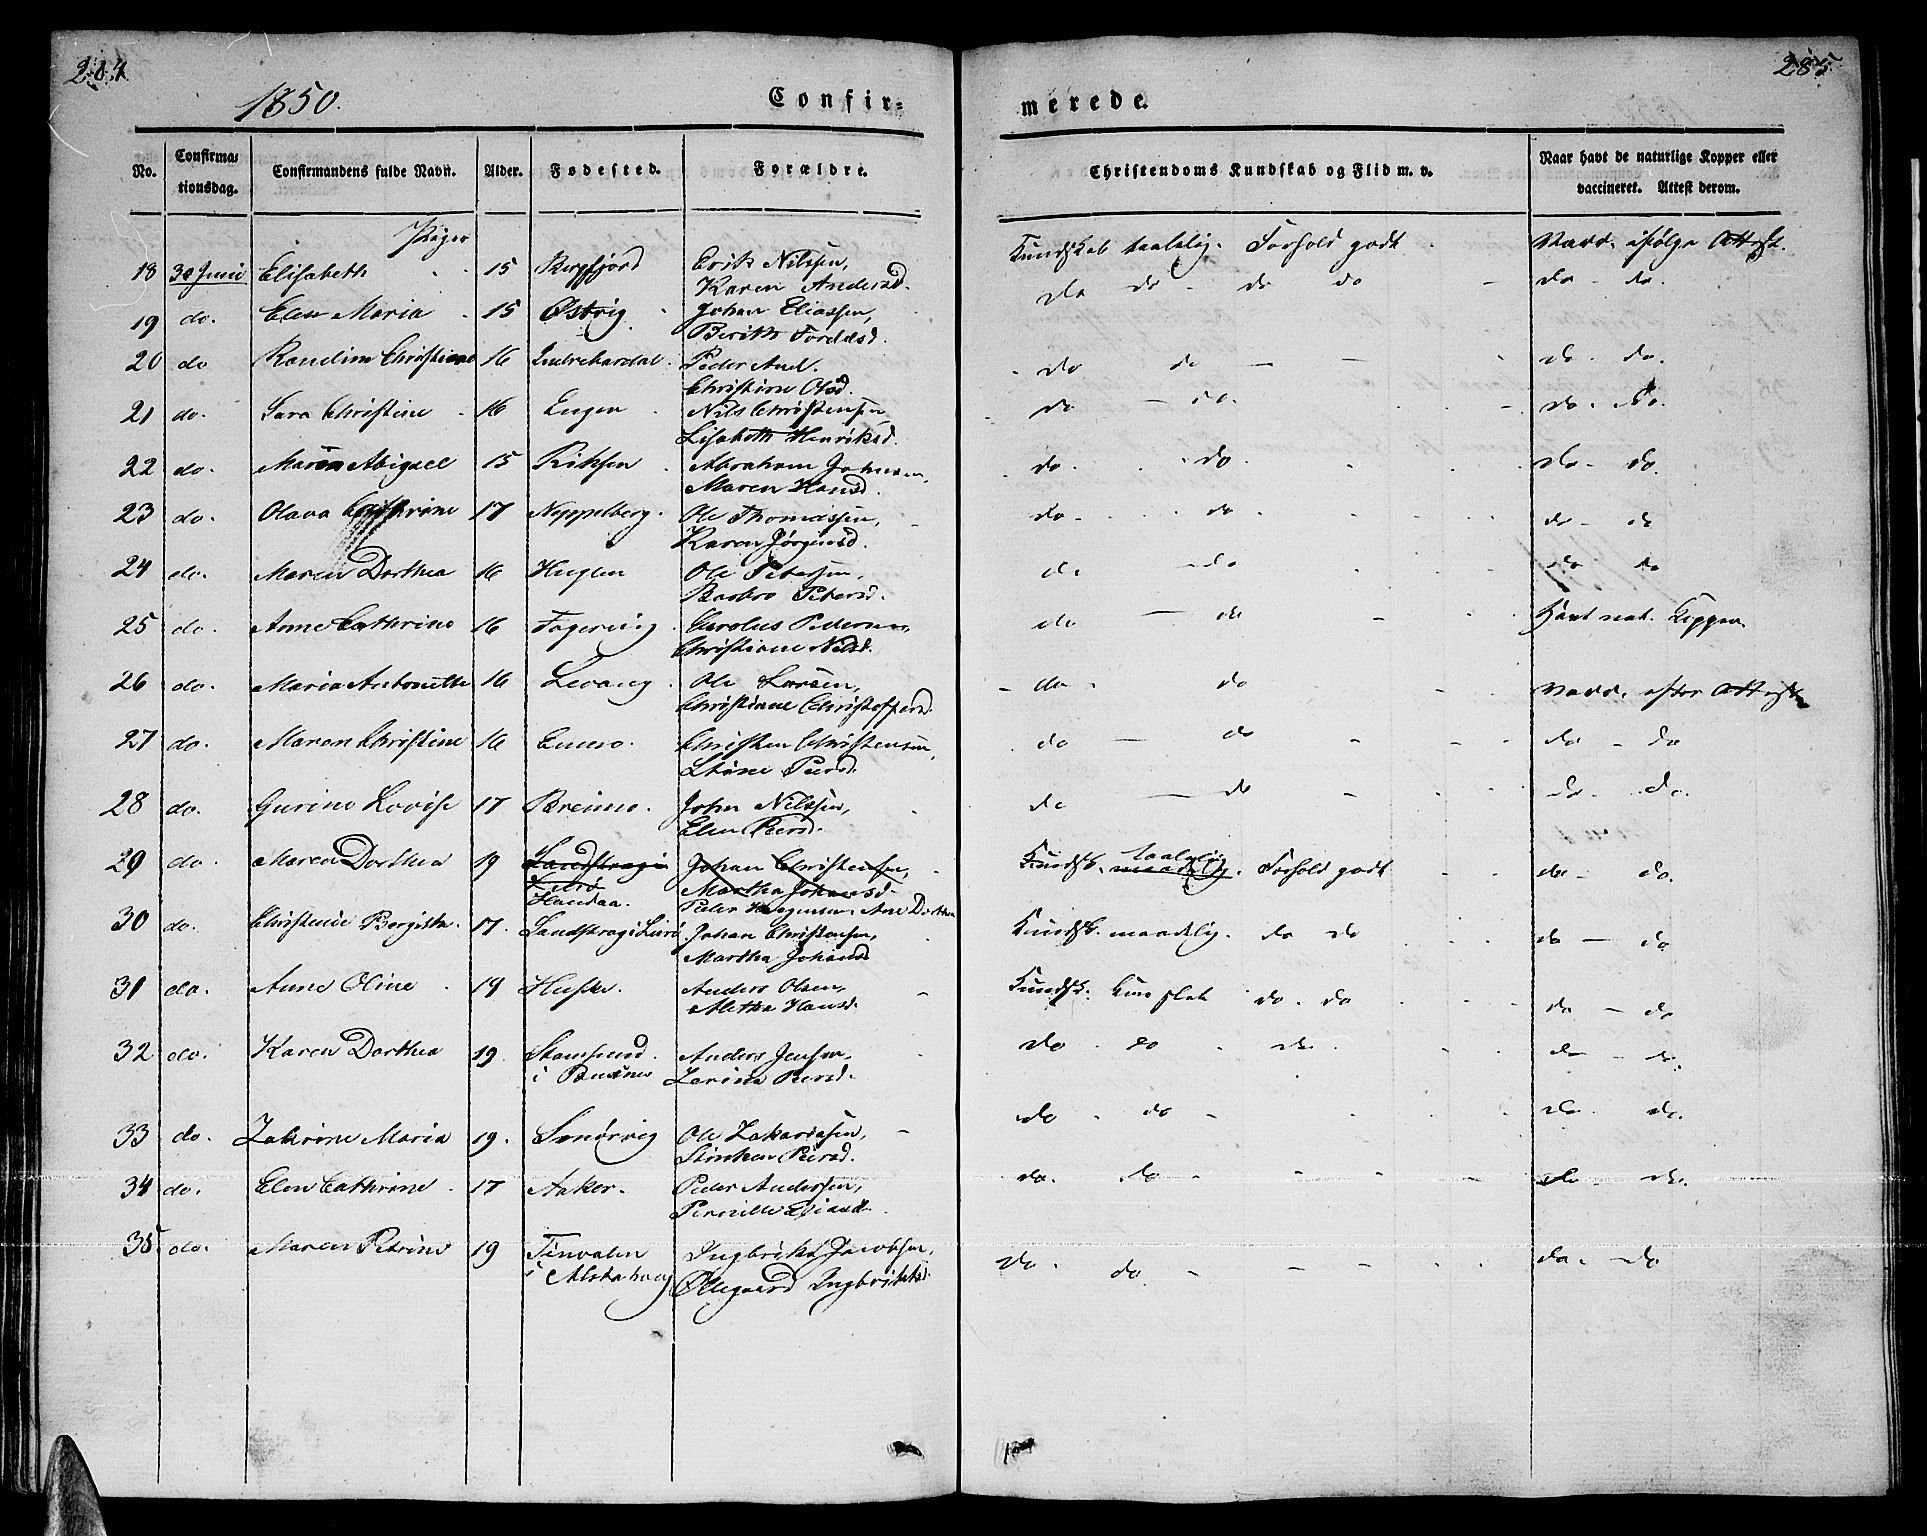 284
285
1850.
Confir=
merede.
No.
Confirma=
tionsdag.
Confirmandens fulde Navn.
Alder.
Fødested.
Forældre.
Christendoms Kundskab og Flid m. v.
Naar havt de naturlige Kopper eller
vaccineret. Attest derom.
Piger
18 30 Juni Elisabeth 15 Bergfjord Erik Nilssen, Kundskab taalelig. Forhold godt. Vacc. ifølge Attest.
Karen Andersd.
19 do. Elen Maria 15 Østvig Johan Eliassen, do do - do do - do - do.
Berith Tordesd.
20 do Randine Christiane 16 Indrehardal. Peder And. do do - do - do.
Christine Olsd.
21 do. Sara Christine 16 Engen Nils Christensen do - do. do - do.
Lisabeth Henriksd.
22 do. Maren Abigael 15 Riksen Abraham Johnsen, do. do. do - do.
Maren Hansd.
23 do. Olava Cathrine 17 Neppelberg. Ole Thomassen, do - do - do - do
Karen Jørgensd.
24 do. Maren Dorthea 16 Huglen Ole Petersen, do - do do do
Barbro Petersd.
25 do. Anne Cathrine 16 Fagervig Carolus Pedersen, do - do - Havt nat. Kopper.
Christiane Nilsd.
26 do. Maria Antonette 16 Levang Ole Larsen, do - do Vacc. efter Attest
Christiane Christoffersd.
27 do. Maren Christine 16 Christen Christensen, do - do - do - do
Stine Peersd.
28 do. Gurine Lovise 17 Breimo. John Nilssen, do - do - do - do.
Elen Peersd.
29 do. Maren Dorthea 19 Landstragi i Johan Christensen, Kundsk. maadelig. taalelig Forhold godt do - do.
Lurø Martha Johansd.
Handaa. Peder Haagensen, Ane Dorthea
30 do. Christense Bergithe 17. Landstrag i Lurø Johan Christensen, Kundsk. maadelig. do do do - do
Martha Johansd
31 do. Anne Oline 19 Huste. Anders Olsen, Kundsk. kun slet do. do do - do
Aletha Hansd.
32 do. Karen Dorthea 19. Stamsund. Anders Jensen, do do do. do - do.
i Buxnes Zarina Peersd.
33 do. Zakrine Maria 19. Snørvig Ole Zakariasen, do - do - do. do.
Stinken Peersd.
34 do. Elen Cathrine 17 Aaker. Peder Anderssen, do. do - do - do.
Pernille Eliasd.
35 do. Maren Petrine 19 Tenvalen Ingbrikt Jacobsen, do. do - do. - do
i Alstahoug Ollegaard Ingbriktsd.